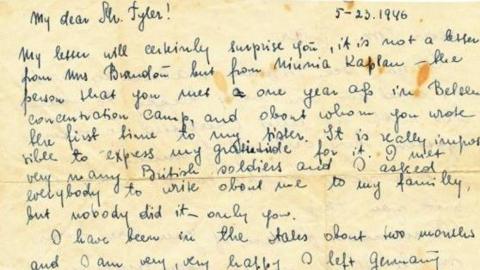 My dear Mr. Tyler! 5-23.1946
My letter will certainly surprise you, it is not a letter
from Mrs Brandon but from Niunia Kaplan – the
person that you met a one year ago in Belsen
concentration camp, and about whom you wrote
the first time to my sister. It is really impos
sible to express my gratitude for it. I met
very many British soldiers and I asked
everybody to write about me to my familly,
but nobody did it – only you.
I have been in the states about two months
and I am very, very happy I left Germany